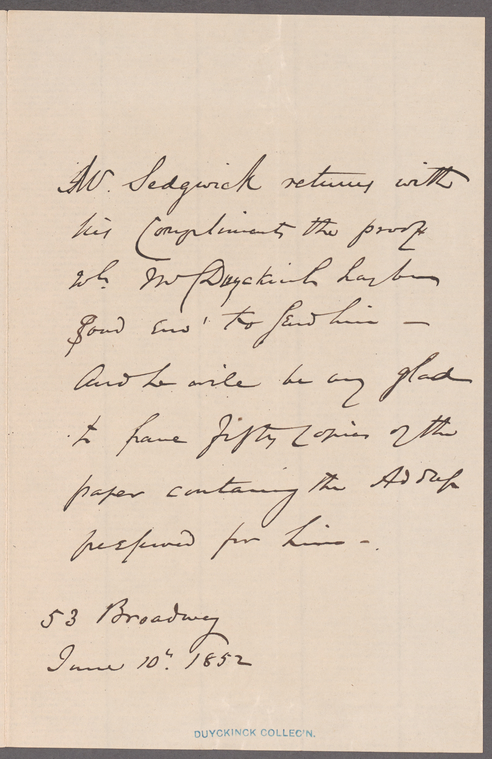 Mr. Sedgwick returns with
his Compliments the proof
wh. Mr Duyckinck has been
good eno' to send him —
And he will be very glad
to have fifty copies of the
paper containing the Address
preserved for him —.
53 Broadway
June 10th. 1852
DUYCKINCK COLLEC'N.